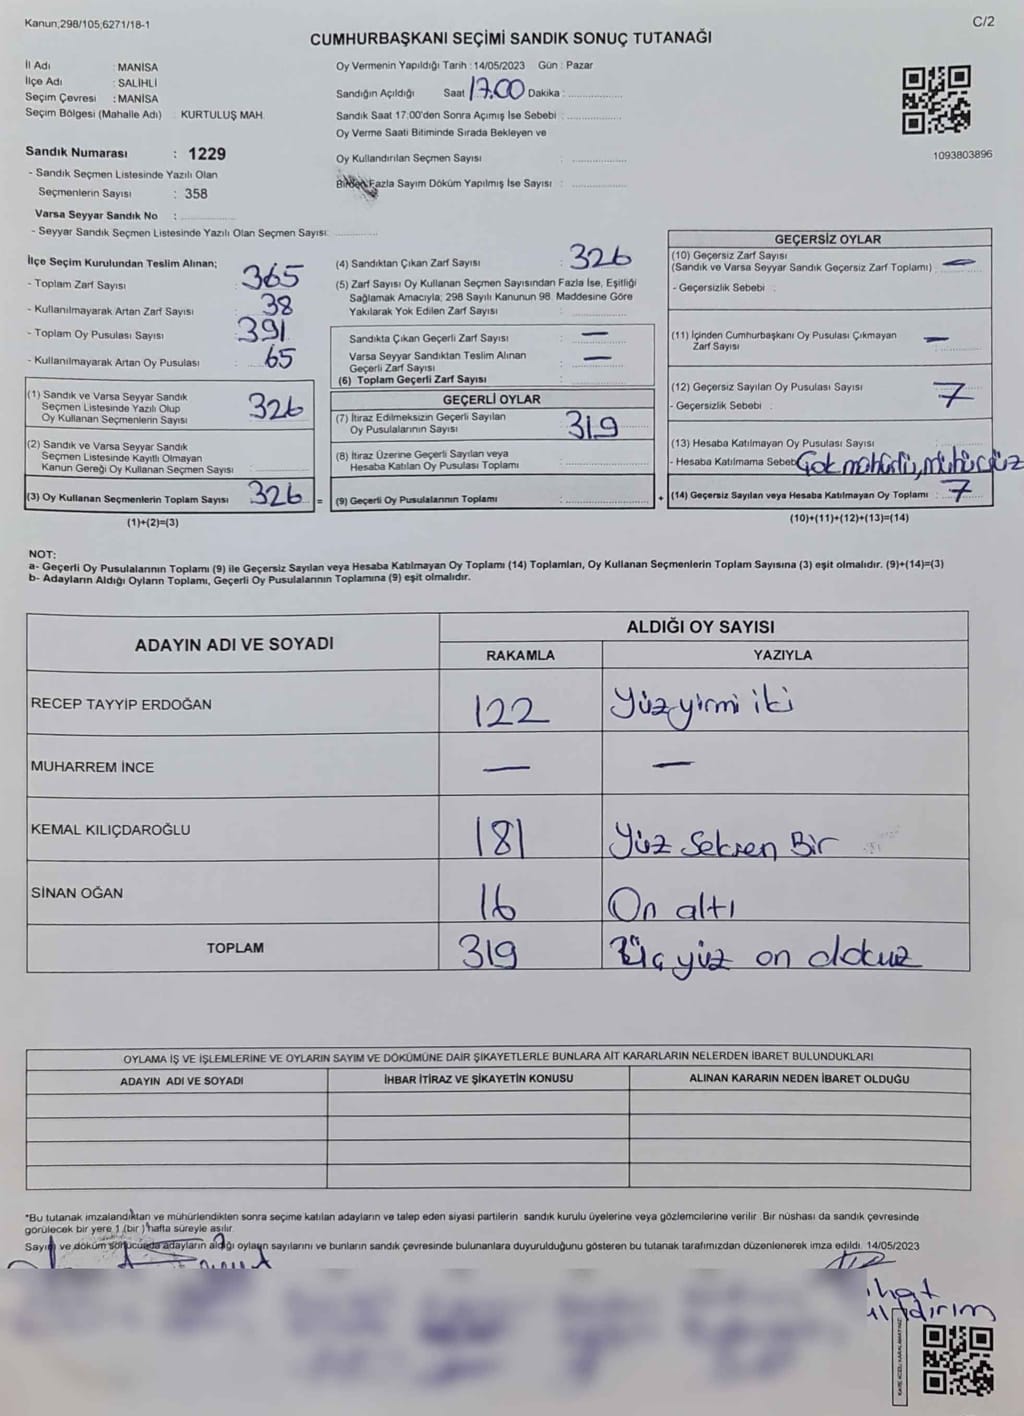 Kanun;298/105;6271/18-1
C/2
CUMHURBAŞKANI SEÇİMİ SANDIK SONUÇ TUTANAĞI
İl Adı : MANİSA
İlçe Adı : SALİHLİ
Seçim Çevresi : MANİSA
Seçim Bölgesi (Mahalle Adı) : KURTULUŞ MAH.
Sandık Numarası : 1229
- Sandık Seçmen Listesinde Yazılı Olan
Seçmenlerin Sayısı : 358
Varsa Seyyar Sandık No :
- Seyyar Sandık Seçmen Listesinde Yazılı Olan Seçmen Sayısı:
Oy Vermenin Yapıldığı Tarih : 14/05/2023 Gün : Pazar
Sandığın Açıldığı Saat 17.00 Dakika :
Sandık Saat 17:00'den Sonra Açımış İse Sebebi :
Oy Verme Saati Bitiminde Sırada Bekleyen ve
Oy Kullandırılan Seçmen Sayısı :
Birden Fazla Sayım Döküm Yapılmış İse Sayısı :
1093803896
İlçe Seçim Kurulundan Teslim Alınan;
- Toplam Zarf Sayısı : 365
- Kullanılmayarak Artan Zarf Sayısı : 38
- Toplam Oy Pusulası Sayısı : 391
- Kullanılmayarak Artan Oy Pusulası : 65
(1) Sandık ve Varsa Seyyar Sandık
Seçmen Listesinde Yazılı Olup
Oy Kullanan Seçmenlerin Sayısı : 326
(2) Sandık ve Varsa Seyyar Sandık
Seçmen Listesinde Kayıtlı Olmayan
Kanun Gereği Oy Kullanan Seçmen Sayısı :
(3) Oy Kullanan Seçmenlerin Toplam Sayısı : 326 =
(1)+(2)=(3)
(4) Sandıktan Çıkan Zarf Sayısı : 326
(5) Zarf Sayısı Oy Kullanan Seçmen Sayısından Fazla İse, Eşitliği
Sağlamak Amacıyla; 298 Sayılı Kanunun 98. Maddesine Göre
Yakılarak Yok Edilen Zarf Sayısı :
Sandıkta Çıkan Geçerli Zarf Sayısı : —
Varsa Seyyar Sandıktan Teslim Alınan
Geçerli Zarf Sayısı : —
(6) Toplam Geçerli Zarf Sayısı :
GEÇERLİ OYLAR
(7) İtiraz Edilmeksizin Geçerli Sayılan
Oy Pusulalarının Sayısı : 319
(8) İtiraz Üzerine Geçerli Sayılan veya
Hesaba Katılan Oy Pusulası Toplamı :
(9) Geçerli Oy Pusulalarının Toplamı : +
GEÇERSİZ OYLAR
(10) Geçersiz Zarf Sayısı
(Sandık ve Varsa Seyyar Sandık Geçersiz Zarf Toplamı) : —
- Geçersizlik Sebebi :
(11) İçinden Cumhurbaşkanı Oy Pusulası Çıkmayan
Zarf Sayısı : —
(12) Geçersiz Sayılan Oy Pusulası Sayısı : 7
- Geçersizlik Sebebi :
(13) Hesaba Katılmayan Oy Pusulası Sayısı :
- Hesaba Katılmama Sebebi Çok mühürlü, mühürsüz
(14) Geçersiz Sayılan veya Hesaba Katılmayan Oy Toplamı : 7
(10)+(11)+(12)+(13)=(14)
NOT:
a- Geçerli Oy Pusulalarının Toplamı (9) ile Geçersiz Sayılan veya Hesaba Katılmayan Oy Toplamı (14) Toplamları, Oy Kullanan Seçmenlerin Toplam Sayısına (3) eşit olmalıdır. (9)+(14)=(3)
b- Adayların Aldığı Oyların Toplamı, Geçerli Oy Pusulalarının Toplamına (9) eşit olmalıdır.
ADAYIN ADI VE SOYADI
ALDIĞI OY SAYISI
RAKAMLA YAZIYLA
RECEP TAYYİP ERDOĞAN 122 Yüzyirmi iki
MUHARREM İNCE — —
KEMAL KILIÇDAROĞLU 181 Yüz Seksen Bir
SİNAN OĞAN 16 On altı
TOPLAM 319 Üç yüz on dokuz
OYLAMA İŞ VE İŞLEMLERİNE VE OYLARIN SAYIM VE DÖKÜMÜNE DAİR ŞİKAYETLERLE BUNLARA AİT KARARLARIN NELERDEN İBARET BULUNDUKLARI
ADAYIN ADI VE SOYADI İHBAR İTİRAZ VE ŞİKAYETİN KONUSU ALINAN KARARIN NEDEN İBARET OLDUĞU
*Bu tutanak imzalandıktan ve mühürlendikten sonra seçime katılan adayların ve talep eden siyasi partilerin sandık kurulu üyelerine veya gözlemcilerine verilir. Bir nüshası da sandık çevresinde
görülecek bir yere 1 (bir ) hafta süreyle asılır.
Sayım ve döküm sonucunda adayların aldığı oyların sayılarını ve bunların sandık çevresinde bulunanlara duyurulduğunu gösteren bu tutanak tarafımızdan düzenlenerek imza edildi. 14/05/2023